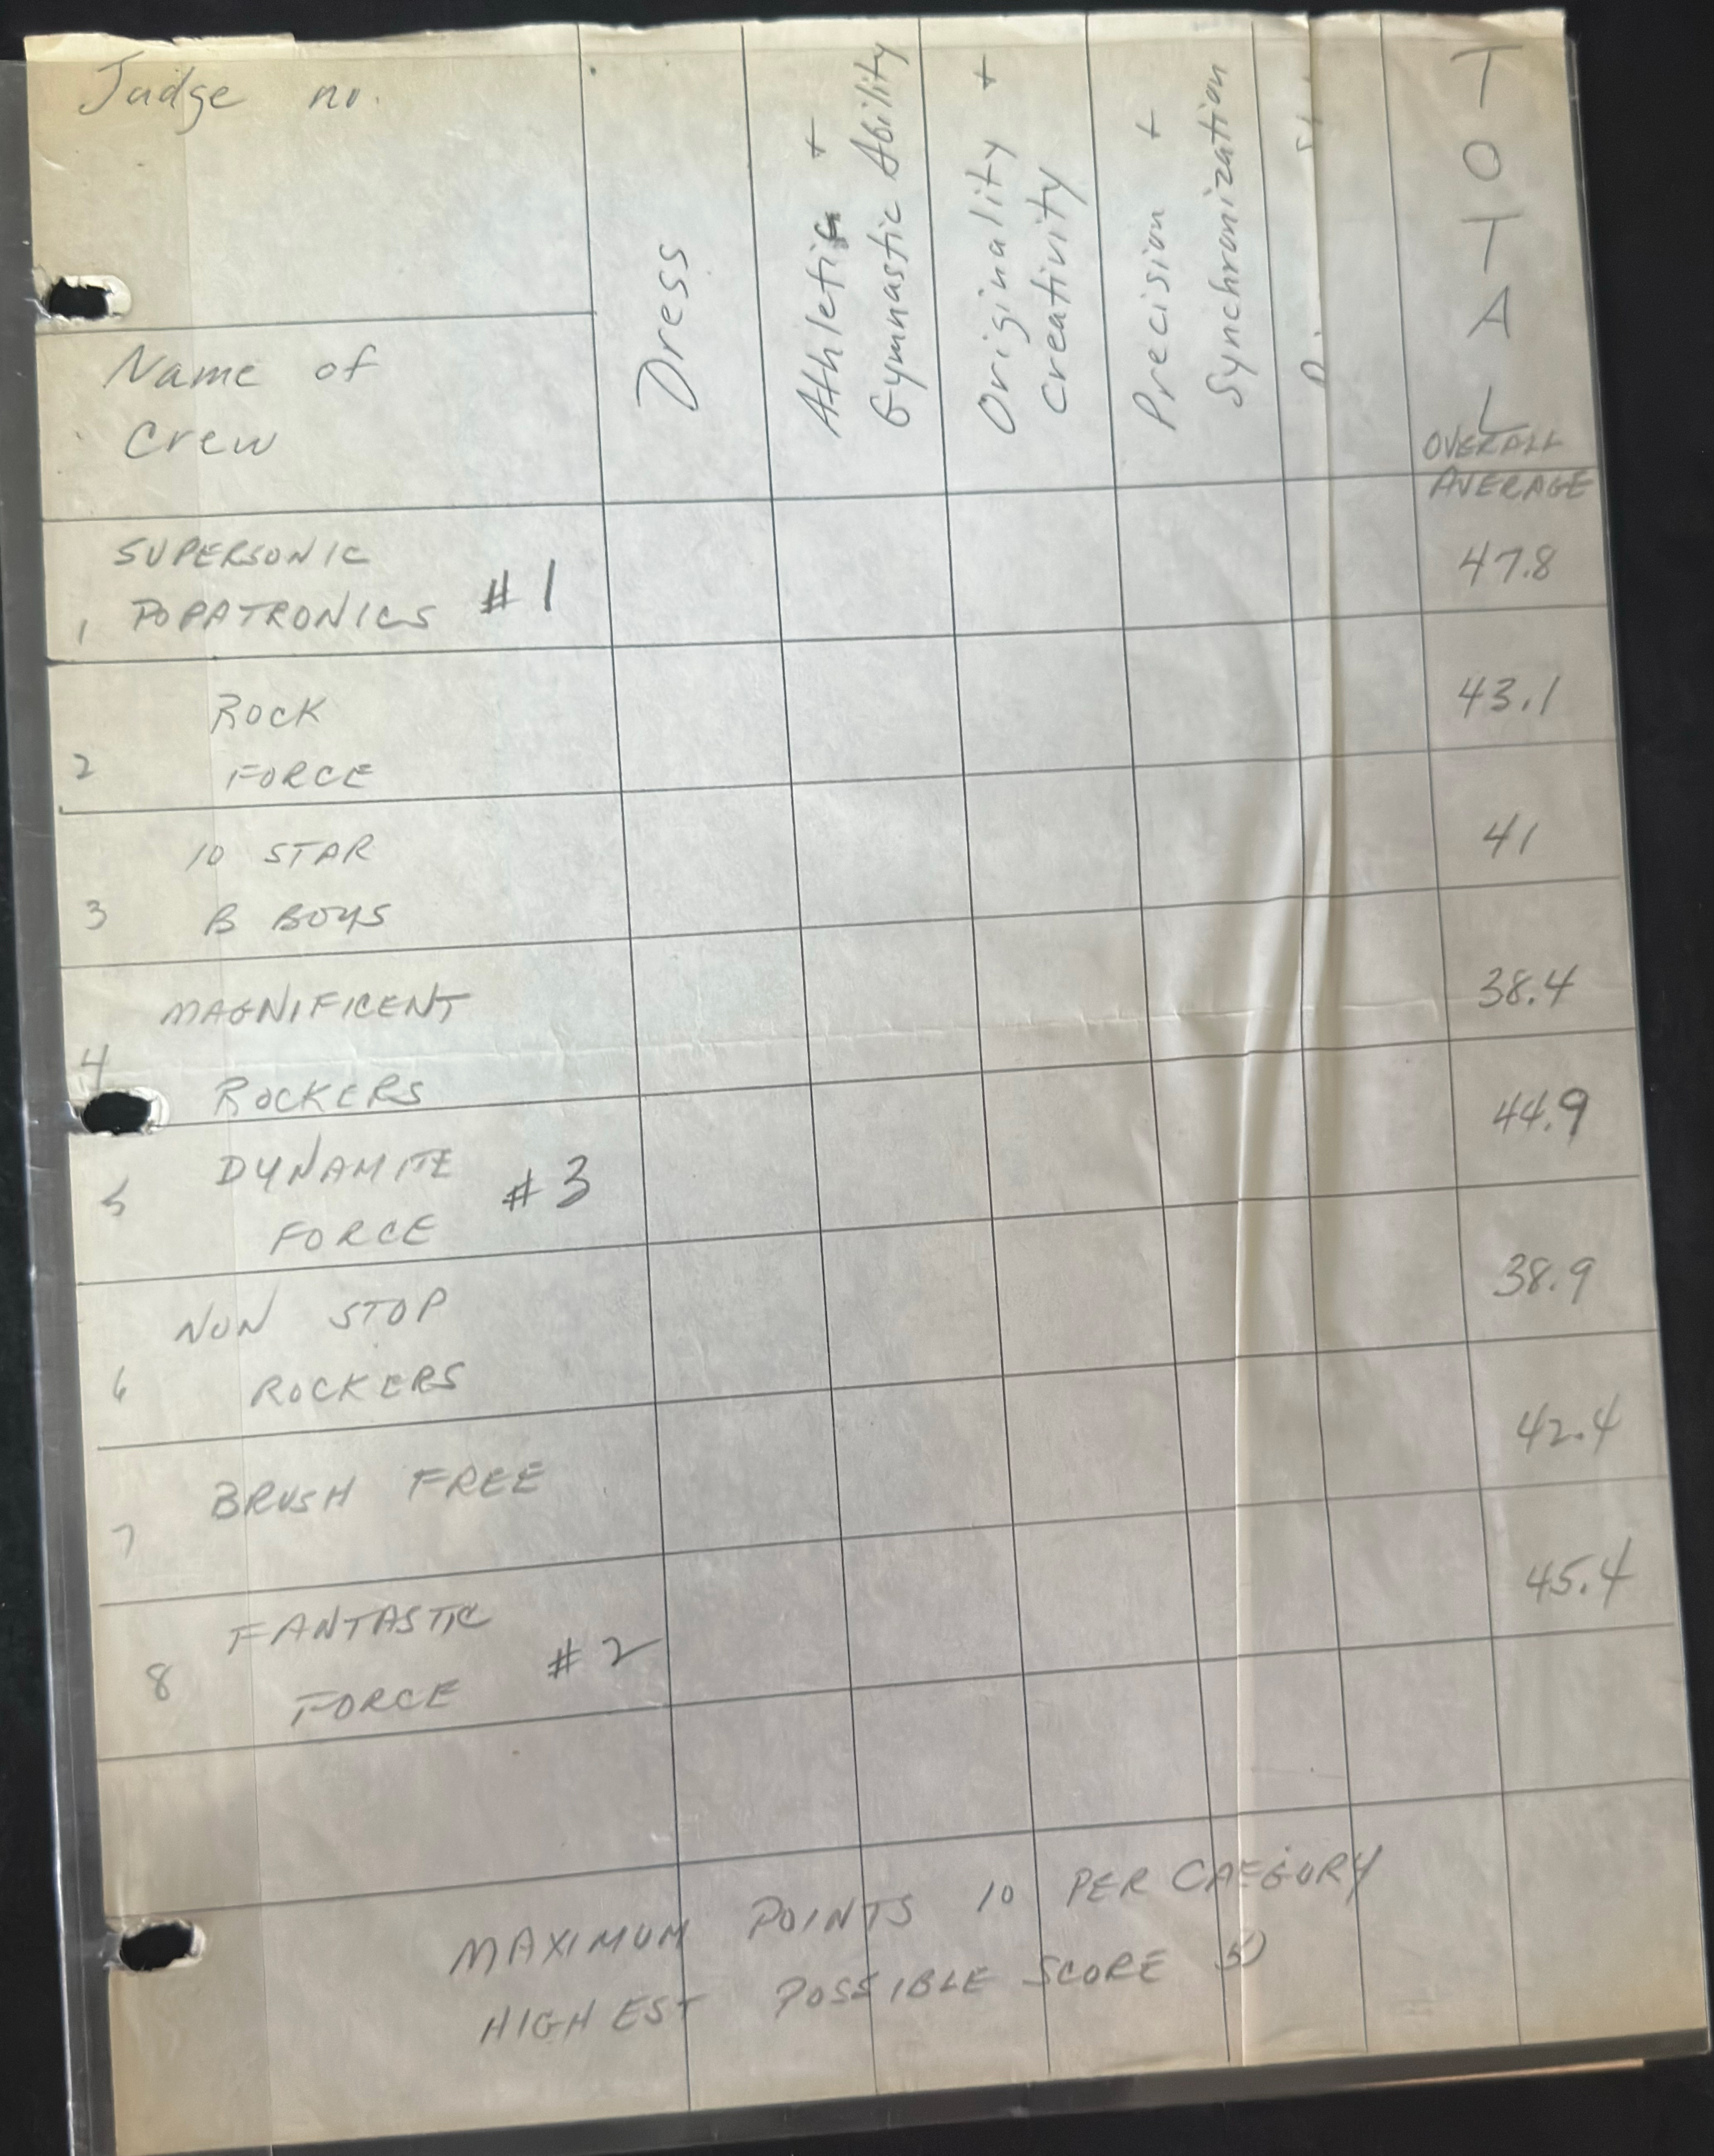 Judge no.
Name of
Crew
Dress
Athletic +
Gymnastic Ability
Originality +
Creativity
Precision +
Synchronization
TOTAL
OVERALL
AVERAGE
SUPERSONIC
1 POPATRONICS #1
47.8
ROCK
2 FORCE
43.1
10 STAR
3 B BOYS
41
MAGNIFICENT
4 ROCKERS
38.4
DYNAMITE
5 FORCE #3
44.9
NON STOP
6 ROCKERS
38.9
BRUSH FREE
7
42.4
FANTASTIC
8 FORCE #2
45.4
MAXIMUM POINTS 10 PER CAEGORY
HIGHEST POSSIBLE SCORE 50